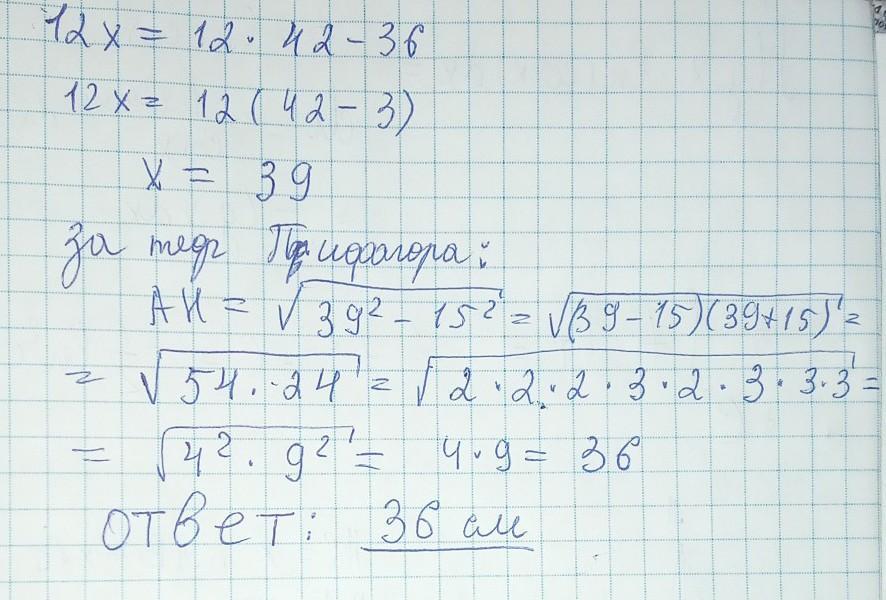 12x = 12 · 42 - 36
12x = 12 ( 42 - 3)
x = 39
за теор Пифагора:
AH = √(39² - 15²) = √((39 - 15)(39 + 15)) =
= √(54 · 24) = √(2 · 2 · 2 · 3 · 2 · 3 · 3 · 3) =
= √(4² · 9²) = 4 · 9 = 36
ответ: 36 см